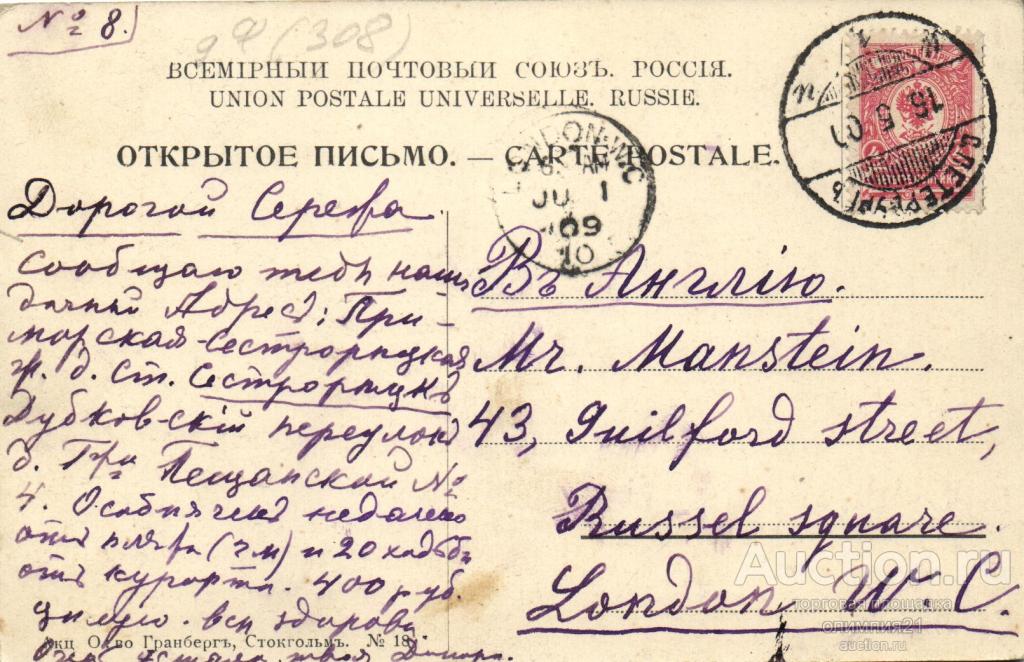 № 8.
(308)
ВСЕМІРНЫЙ ПОЧТОВЫЙ СОЮЗЪ. РОССІЯ.
UNION POSTALE UNIVERSELLE. RUSSIE.
ОТКРЫТОЕ ПИСЬМО. — CARTE POSTALE.
С.ПЕТЕРБУРГЪ
LONDON. W.C
AM
JU 1
09
10
Дорогой Сережа.
Сообщаю тебѣ нашъ
дачный Адресъ: При-
морская-Сестрорѣцкая
ж. д. Ст. Сестрорѣцкъ
Дубковскій переулокъ
д. Гр. Пещанской №
4. Особнячекъ недалеко
отъ пляжа ( ) и 20 ходьбы
отъ курорта. 400 руб.
всѣ здоровы
твоя
Въ Англію.
Mr. Manstein.
43, Guilford street,
Russel square.
London W. C.
Акц. О-во Гранбергъ, Стокгольмъ. № 18
Auction.ru
торговая площадка
олимпия21
auction.ru